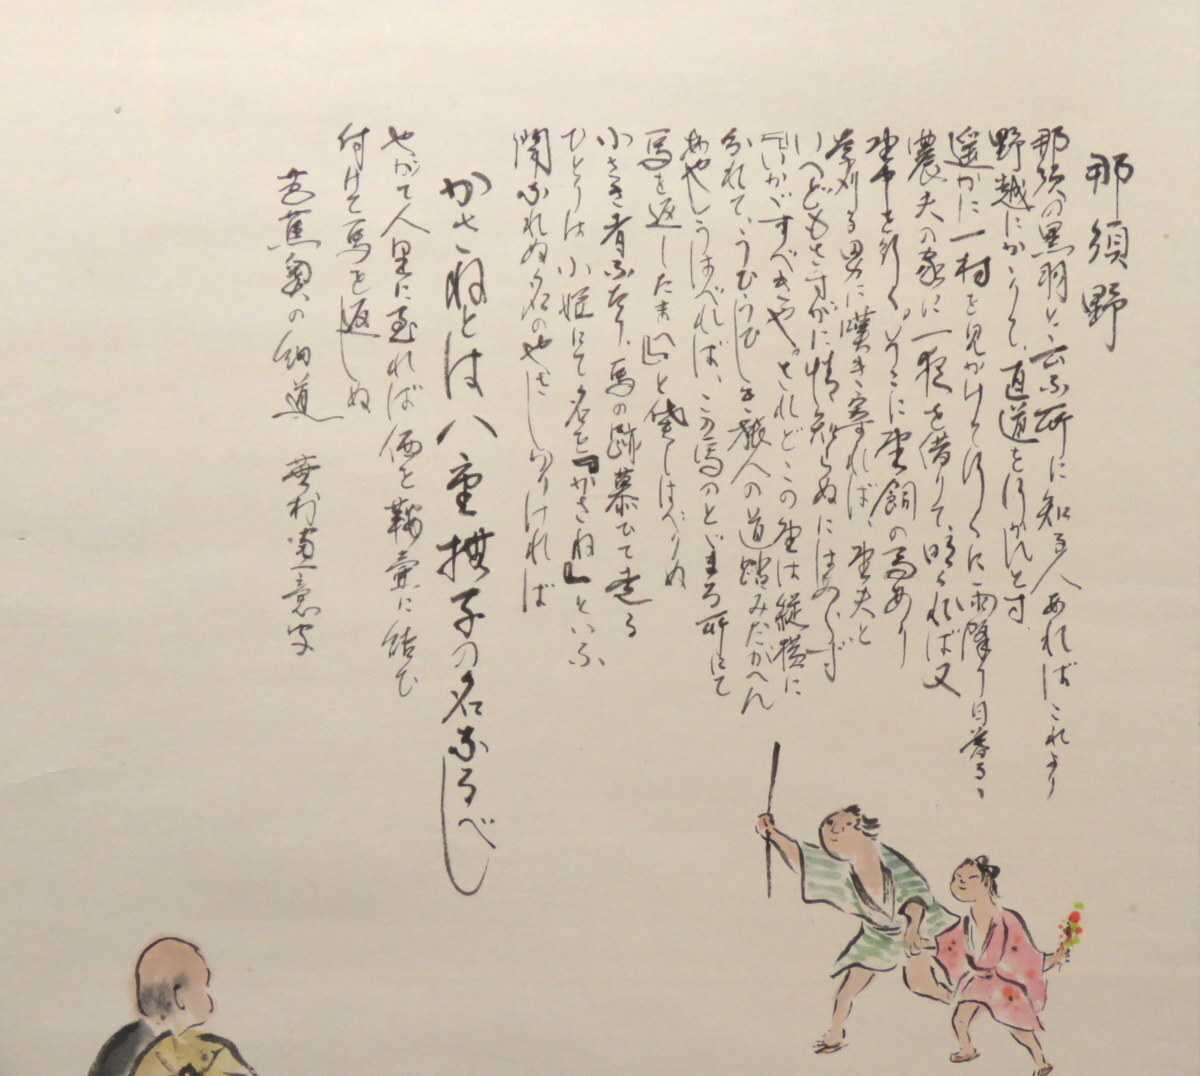 那須野
那須の黒羽と云ふ所に知る人あればこれより
野越にかゝりて、直道をゆかんとす
遥かに一村を見かけて行くに雨降り日暮るゝ
農夫の家に一夜を借りて、明くれば又
野中を行く。そこに野飼の馬あり
草刈る男に嘆き寄れば、野夫と
いへどもさすがに情知らぬにはあらず
『いかゞすべきや。されどこの野は縦横に
分れて、うひうひしき旅人の道踏みたがへん
あやしうはべれば、この馬のとゞまる所にて
馬を返したまへ』と貸しはべりぬ
小さき者ふたり、馬の跡慕ひて走る
ひとりは小姫にて名を『かさね』といふ
聞なれぬ名のやさしかりければ
かさねとは八重撫子の名なるべし
やがて人里に至れば価を鞍壷に結び
付けて馬を返しぬ
芭蕉奥の細道 蕪村画意